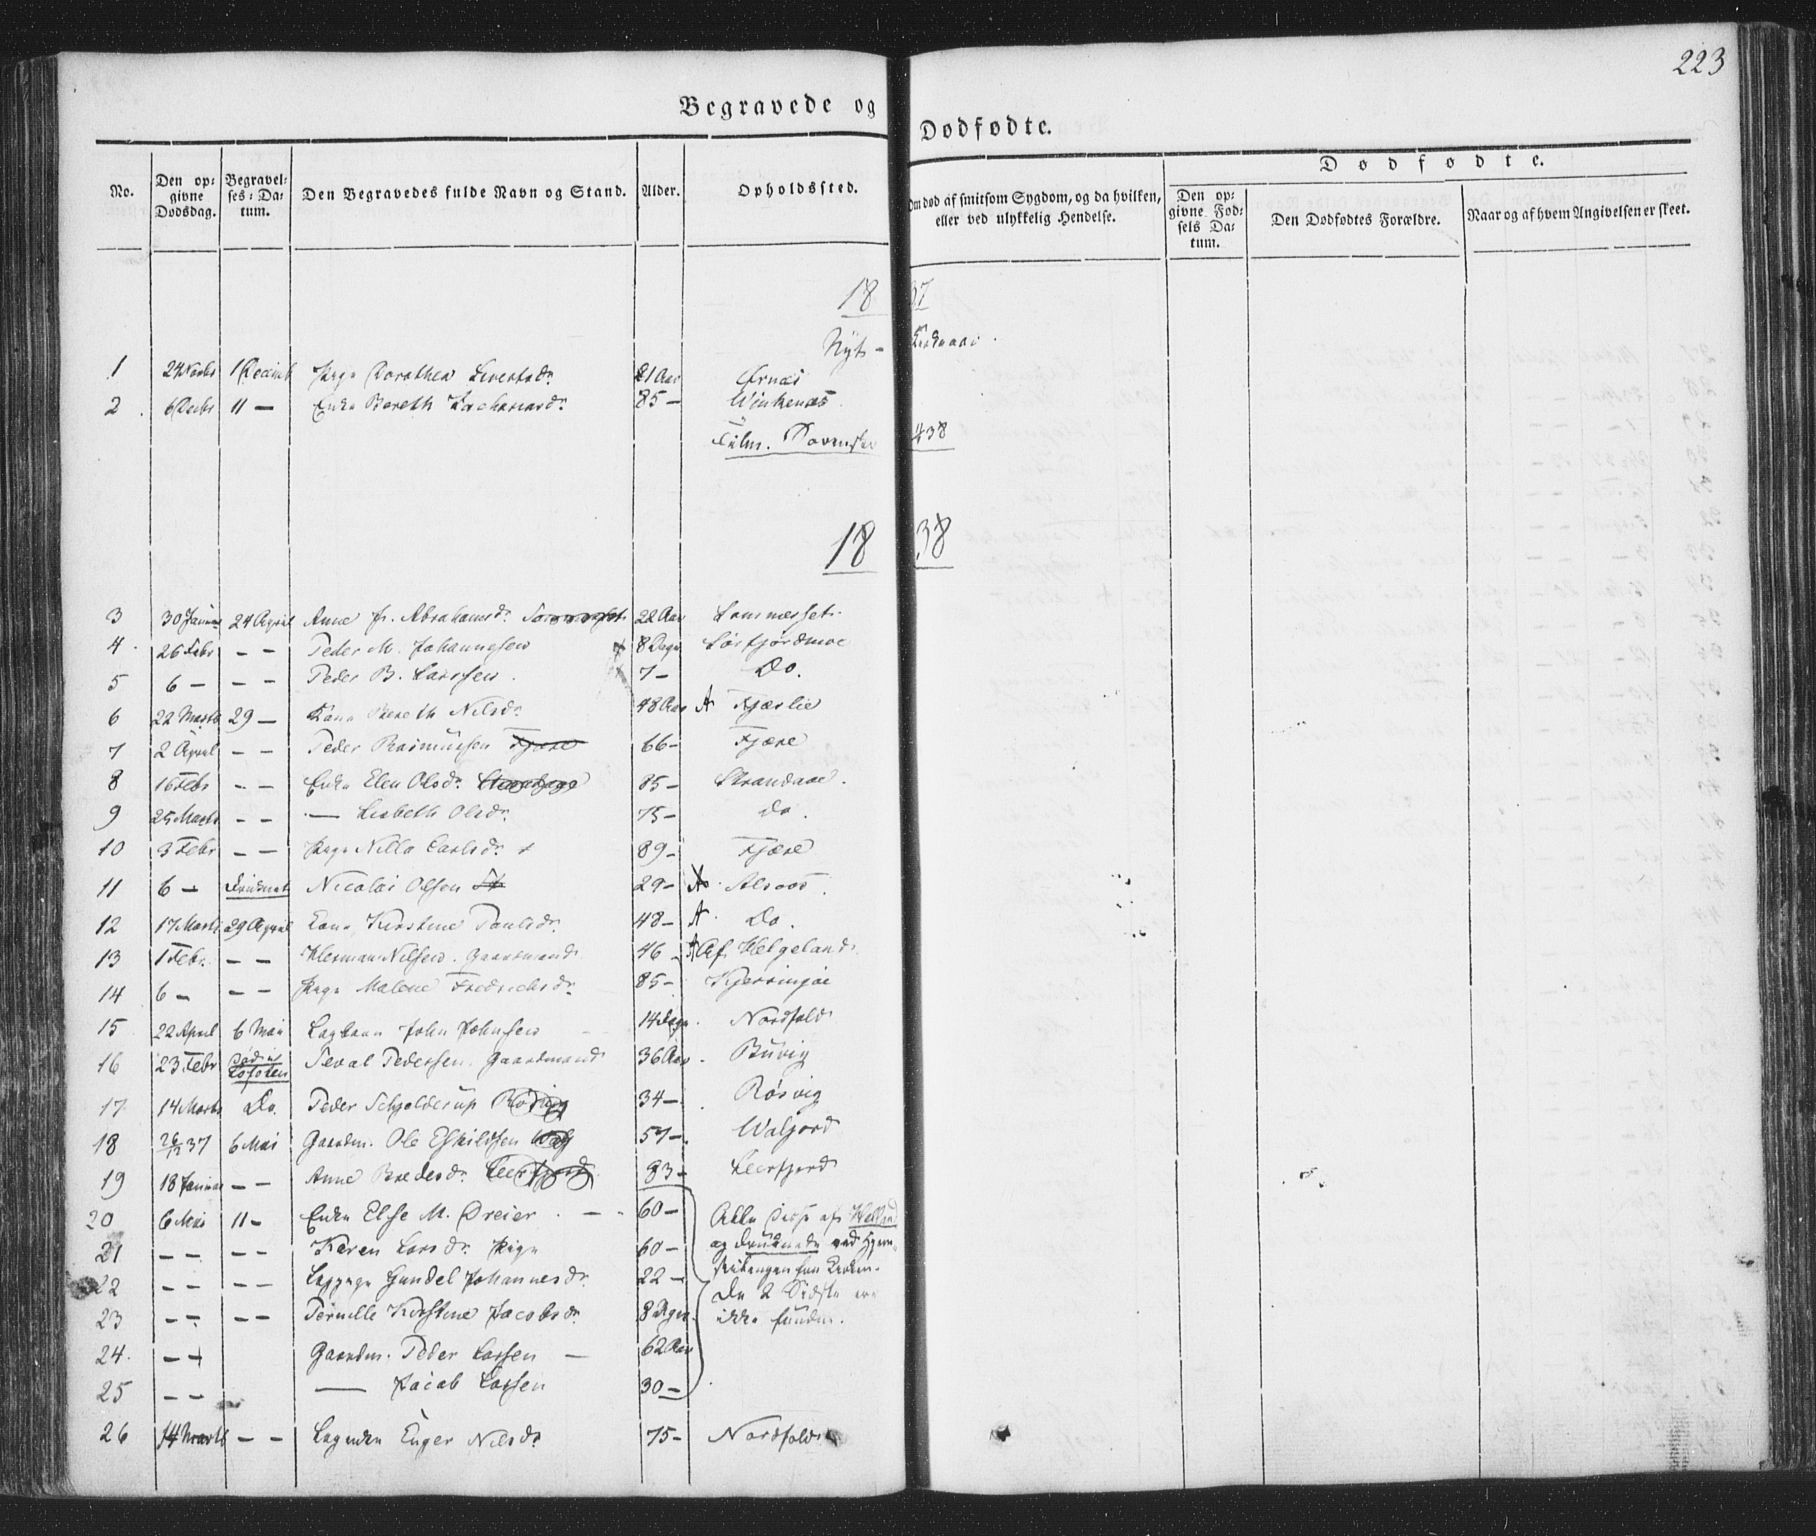 223
Begravede og Dodfodte.
No. Den opgivne Dodsdag. Begravelses-Datum. Den Begravedes fulde Navn og Stand. Alder. Opholdssted. Om dod af smitsom Sygdom, og da hvilken, eller ved ulykkelig Hendelse. Dodfodte. Den opgivne Fodsels Datum. Den Dodfodtes Forældre. Naar og af hvem Angivelsen er skeet.
18 37
Nyt-
1 24 Novbr 1 Decemb Pige Dorothea Sivertsdr 21 Aar Ernæs
2 6 Decbr 11 — Enke Bereth Zachariasdr 85 — Winkenæs
438
18 38
3 30 Januar 24 April Anne Abrahamsdr 22 Aar Lommesset
4 26 Febr — — Peder M. Johannessen 8 Dage Sørfjordmoe
5 6 — — — Peder B. Larssen 7 — Do.
6 22 Marts 29 — Kone Bereth Nilsdr 48 Aar A Fjærlie
7 2 April — — Peder Rasmussen Fjære 66 — Fjære
8 16 Febr — — Enke Elen Olsdr 85 — Strandaae
9 25 Marts — — — Lisbeth Olsdr 75 — do.
10 3 Febr — — Pige Nilla Carlsdr 89 — Fjære
11 6 — druknet Nicolai Olsen 29 — A Alsoos
12 17 Marts 29 April Kone Kirstine Paulsdr 48 — A Do.
13 1 Febr. — — Herman Nilsen. Gaardmand 46 — A Af Helgeland
14 6 — — — Pige Malene Fredrichsdr 85 — Kjerringøe
15 22 April 6 Mai Lapbarn John Johnsen 14 Dage Nordfold
16 23 Febr Død i Lofoten Sevat Pedersen. Gaardmand 36 Aar Buvig
17 14 Marts Do. Peder Schjelderup Røsvig 34 — Røsvig
18 26/12 37 6 Mai Gaardm. Ole Eskildsen 57 — Waljord
19 18 Januar — — Anne Bredesdr Leerfjord 83 — Leerfjord
20 6 Mai 11 — Enke Else M. Dreier 60 — Alle disse af
21 — — Karen Larsdr Pige 60 — og druknede ved
22 — — — — Lappige Gundel Johannesdr 22 — Kirken.
23 — — — — Pernille Kirstine Jacobsdr 8 Uger De 2 Sidste ere
24 — — Gaardm. Peder Larsen 62 Aar ikke fundne.
25 — — — Jacob Larsen 30 —
26 14 Marts — — Lapenke Inger Nilsdr 75 — Nordfold